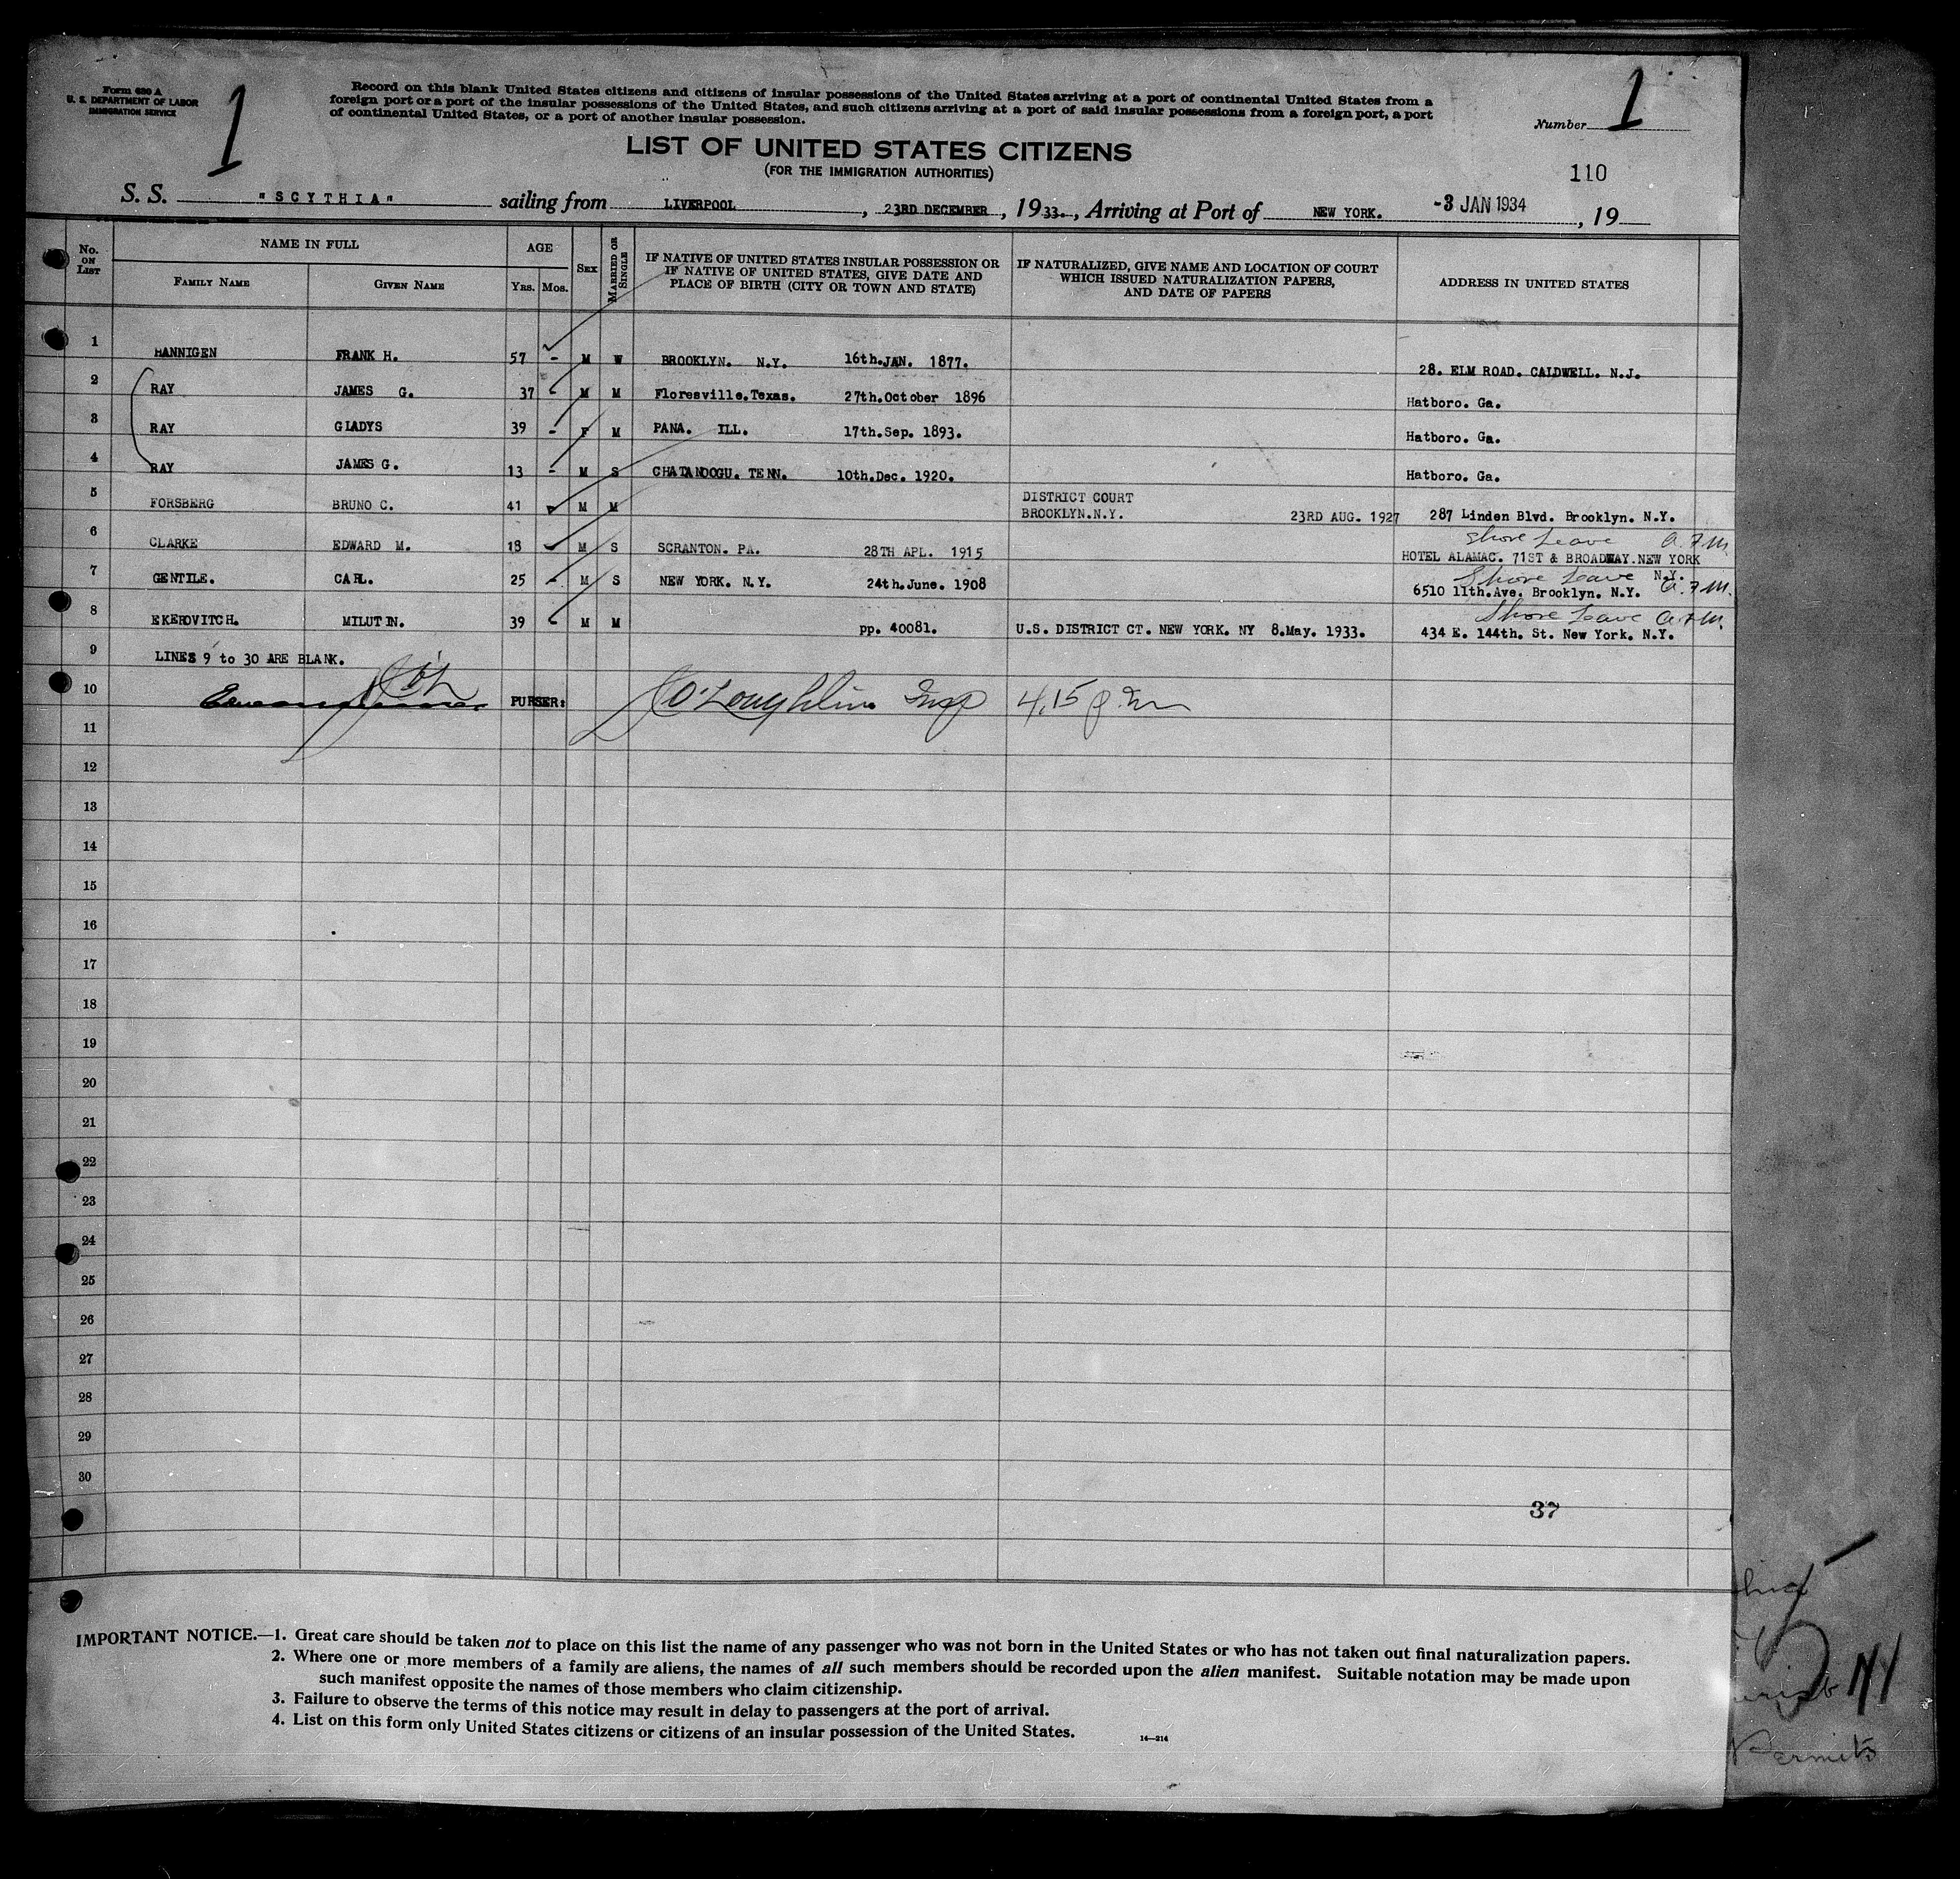 Form 630 A
U. S. DEPARTMENT OF LABOR
IMMIGRATION SERVICE
1
Record on this blank United States citizens and citizens of insular possessions of the United States arriving at a port of continental United States from a
foreign port or a port of the insular possessions of the United States, and such citizens arriving at a port of said insular possessions from a foreign port, a port
of continental United States, or a port of another insular possession.
Number 1
LIST OF UNITED STATES CITIZENS
(FOR THE IMMIGRATION AUTHORITIES)
110
S. S. "SCYTHIA" sailing from LIVERPOOL, 23RD DECEMBER, 1933., Arriving at Port of NEW YORK. -3 JAN 1934, 19
No. ON LIST
NAME IN FULL
FAMILY NAME GIVEN NAME
AGE
YRS. MOS.
SEX
MARRIED OR SINGLE
IF NATIVE OF UNITED STATES INSULAR POSSESSION OR
IF NATIVE OF UNITED STATES, GIVE DATE AND
PLACE OF BIRTH (CITY OR TOWN AND STATE)
IF NATURALIZED, GIVE NAME AND LOCATION OF COURT
WHICH ISSUED NATURALIZATION PAPERS,
AND DATE OF PAPERS
ADDRESS IN UNITED STATES
1 HANNIGEN FRANK H. 57 - M W BROOKLYN. N.Y. 16th.JAN. 1877. 28. ELM ROAD. CALDWELL. N.J.
2 RAY JAMES G. 37 - M M Floresville.Texas. 27th.October 1896 Hatboro. Ga.
3 RAY GLADYS 39 - F M PANA. ILL. 17th.Sep. 1893. Hatboro. Ga.
4 RAY JAMES G. 13 - M S CHATANOOGU. TENN. 10th.Dec. 1920. Hatboro. Ga.
5 FORSBERG BRUNO C. 41 - M M DISTRICT COURT
BROOKLYN.N.Y. 23RD AUG. 1927 287 Linden Blvd. Brooklyn. N.Y.
Shore Leave A.F.M.
6 CLARKE EDWARD M. 18 - M S SCRANTON. PA. 28TH APL. 1915 HOTEL ALAMAC. 71ST & BROADWAY.NEW YORK
N.Y.
Shore Leave A.F.M.
7 GENTILE. CARL. 25 - M S NEW YORK. N.Y. 24th.June. 1908 6510 11th.Ave. Brooklyn. N.Y.
Shore Leave A.F.M.
8 EKEROVITCH. MILUTIN. 39 - M M pp. 40081. U.S. DISTRICT CT. NEW YORK. NY 8.May. 1933. 434 E. 144th. St. New York. N.Y.
9 LINES 9 to 30 ARE BLANK.
10 PURSER: J O'Loughlin Insp 4.15 pm
11
12
13
14
15
16
17
18
19
20
21
22
23
24
25
26
27
28
29
30
37
IMPORTANT NOTICE.—1. Great care should be taken not to place on this list the name of any passenger who was not born in the United States or who has not taken out final naturalization papers.
2. Where one or more members of a family are aliens, the names of all such members should be recorded upon the alien manifest. Suitable notation may be made upon
such manifest opposite the names of those members who claim citizenship.
3. Failure to observe the terms of this notice may result in delay to passengers at the port of arrival.
4. List on this form only United States citizens or citizens of an insular possession of the United States.
14—214
Permits